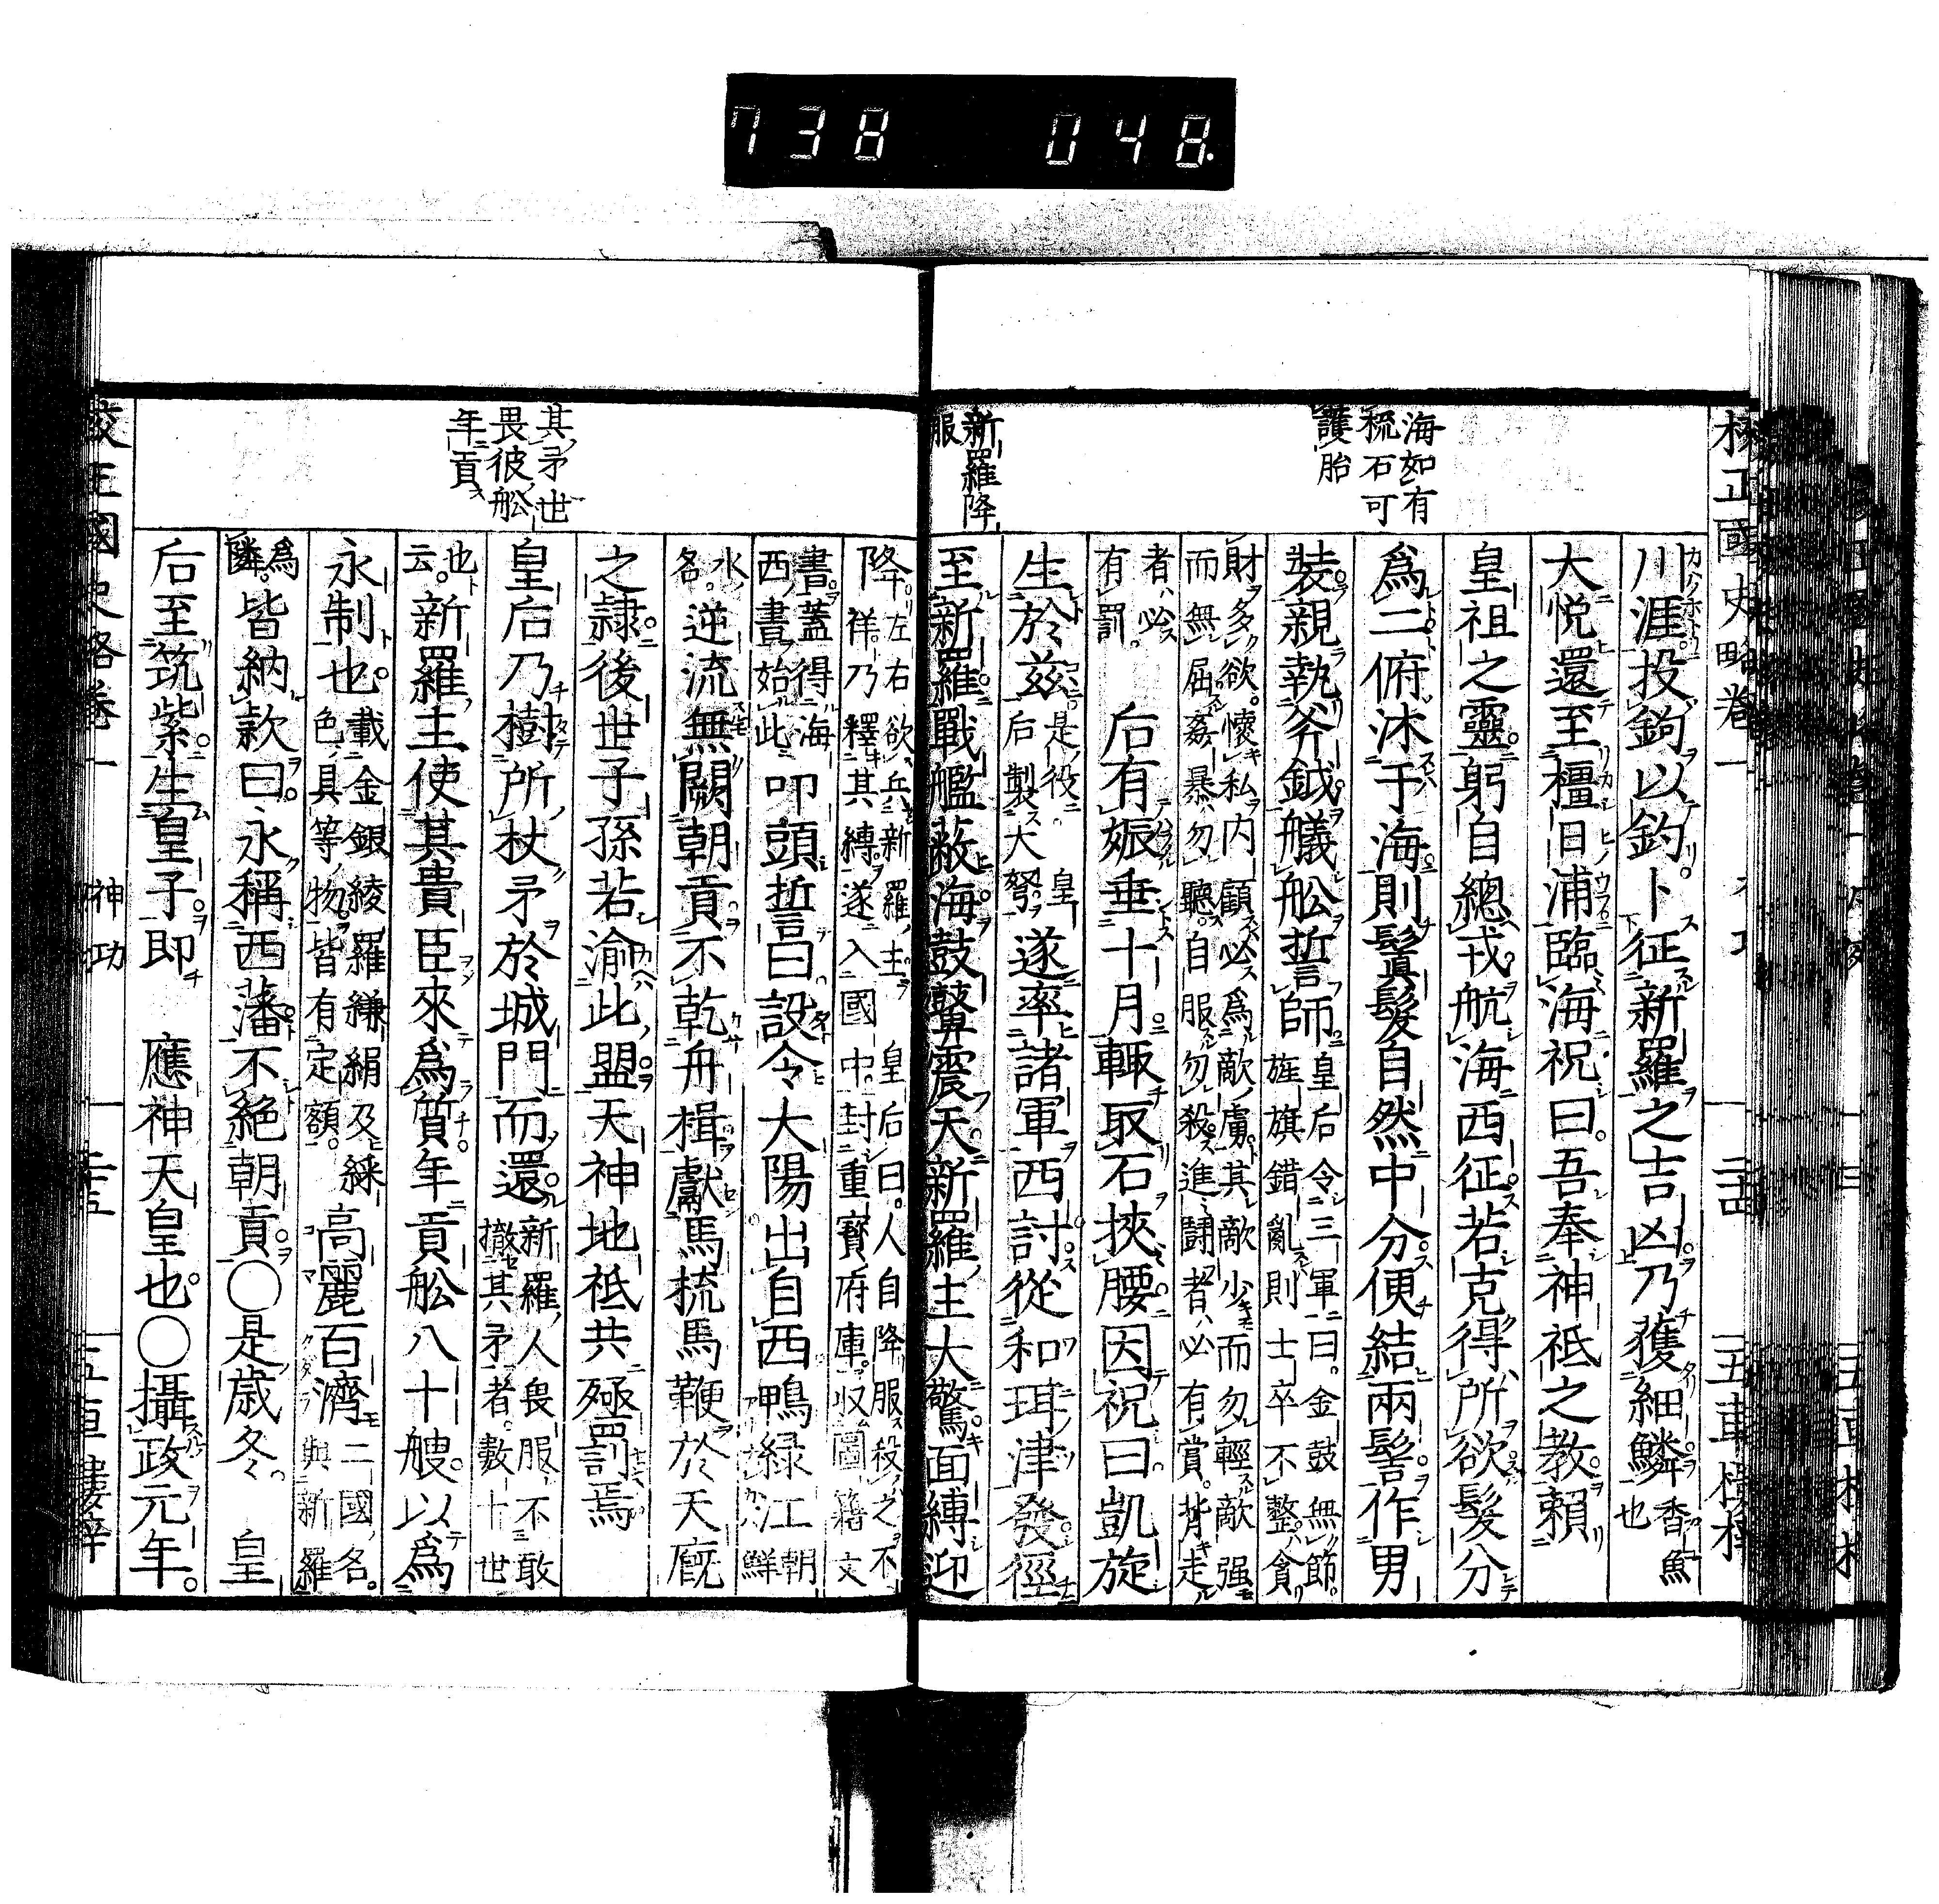 738 048.
校正國史略卷一
海如有
梳石可
護胎
川涯投鉤以釣卜征新羅之吉凶乃獲細鱗香魚也
大悅還至橿日浦臨海祝曰吾奉神祇之教賴
皇祖之靈躬自總戎航海西征若克得所欲髮分
爲二俯沐于海則鬒髮自然中分便結兩髻作男
裝親執斧鉞艤舩誓師皇后令三軍曰金鼓無節
旌旗錯亂則士卒不整貪
財多欲懷私内顧必爲敵虜其敵少而勿輕敵强
而無屈姦暴勿聽自服勿殺進鬪者必有賞背走
者必
有罰后有娠垂十月輙取石挾腰因祝曰凱旋
生於茲是役
后製大弩皇遂率諸軍西討從和珥津發徑
至新羅戰艦蔽海鼓鼙震天新羅主大驚面縛迎
新羅降
服
降左右欲兵新羅主皇后曰人自降服殺之不
祥乃釋其縛遂入國中封重寶府庫収圖籍文
書蓋得海
西書始此叩頭誓曰設令大陽出自西鴨綠江朝鮮
水
名逆流無闕朝貢不乾舟楫獻馬梳馬鞭於天厩
之隷後世子孫若渝此盟天神地祇共殛罰焉
皇后乃樹所杖矛於城門而還新羅人畏服不敢
撤其矛者數十世
也
云新羅主使其貴臣來爲質年貢舩八十艘以爲
永制也載金銀綾羅縑絹及綵
色具等物皆有定額高麗百濟二國名
與新羅
爲
隣皆納款曰永稱西藩不絶朝貢〇是歳冬皇
后至筑紫生皇子即應神天皇也〇攝政元年
其矛世
畏彼舩
年貢
神功